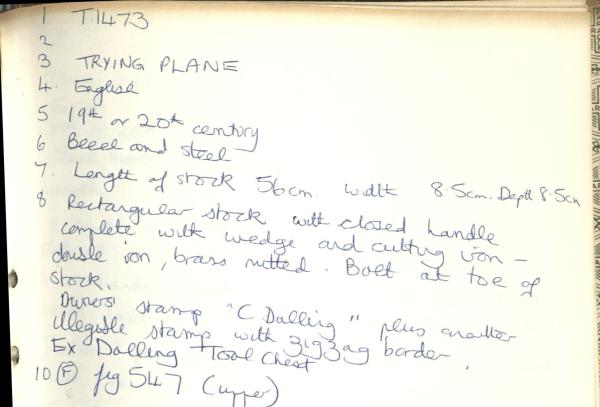 1 T.1473
2
3 TRYING PLANE
4. English
5 19th or 20th century
6 Beech and steel
7. Length of stock 56cm. width 8.5cm. Depth 8.5cm
8 Rectangular stock with closed handle
complete with wedge and cutting iron -
double iron, brass nutted. Bolt at toe of
stock.
Owners' stamp "C Dalling" plus another
illegible stamp with zigzag border.
Ex Dalling Tool Chest
10 (F) fig 547 (upper)